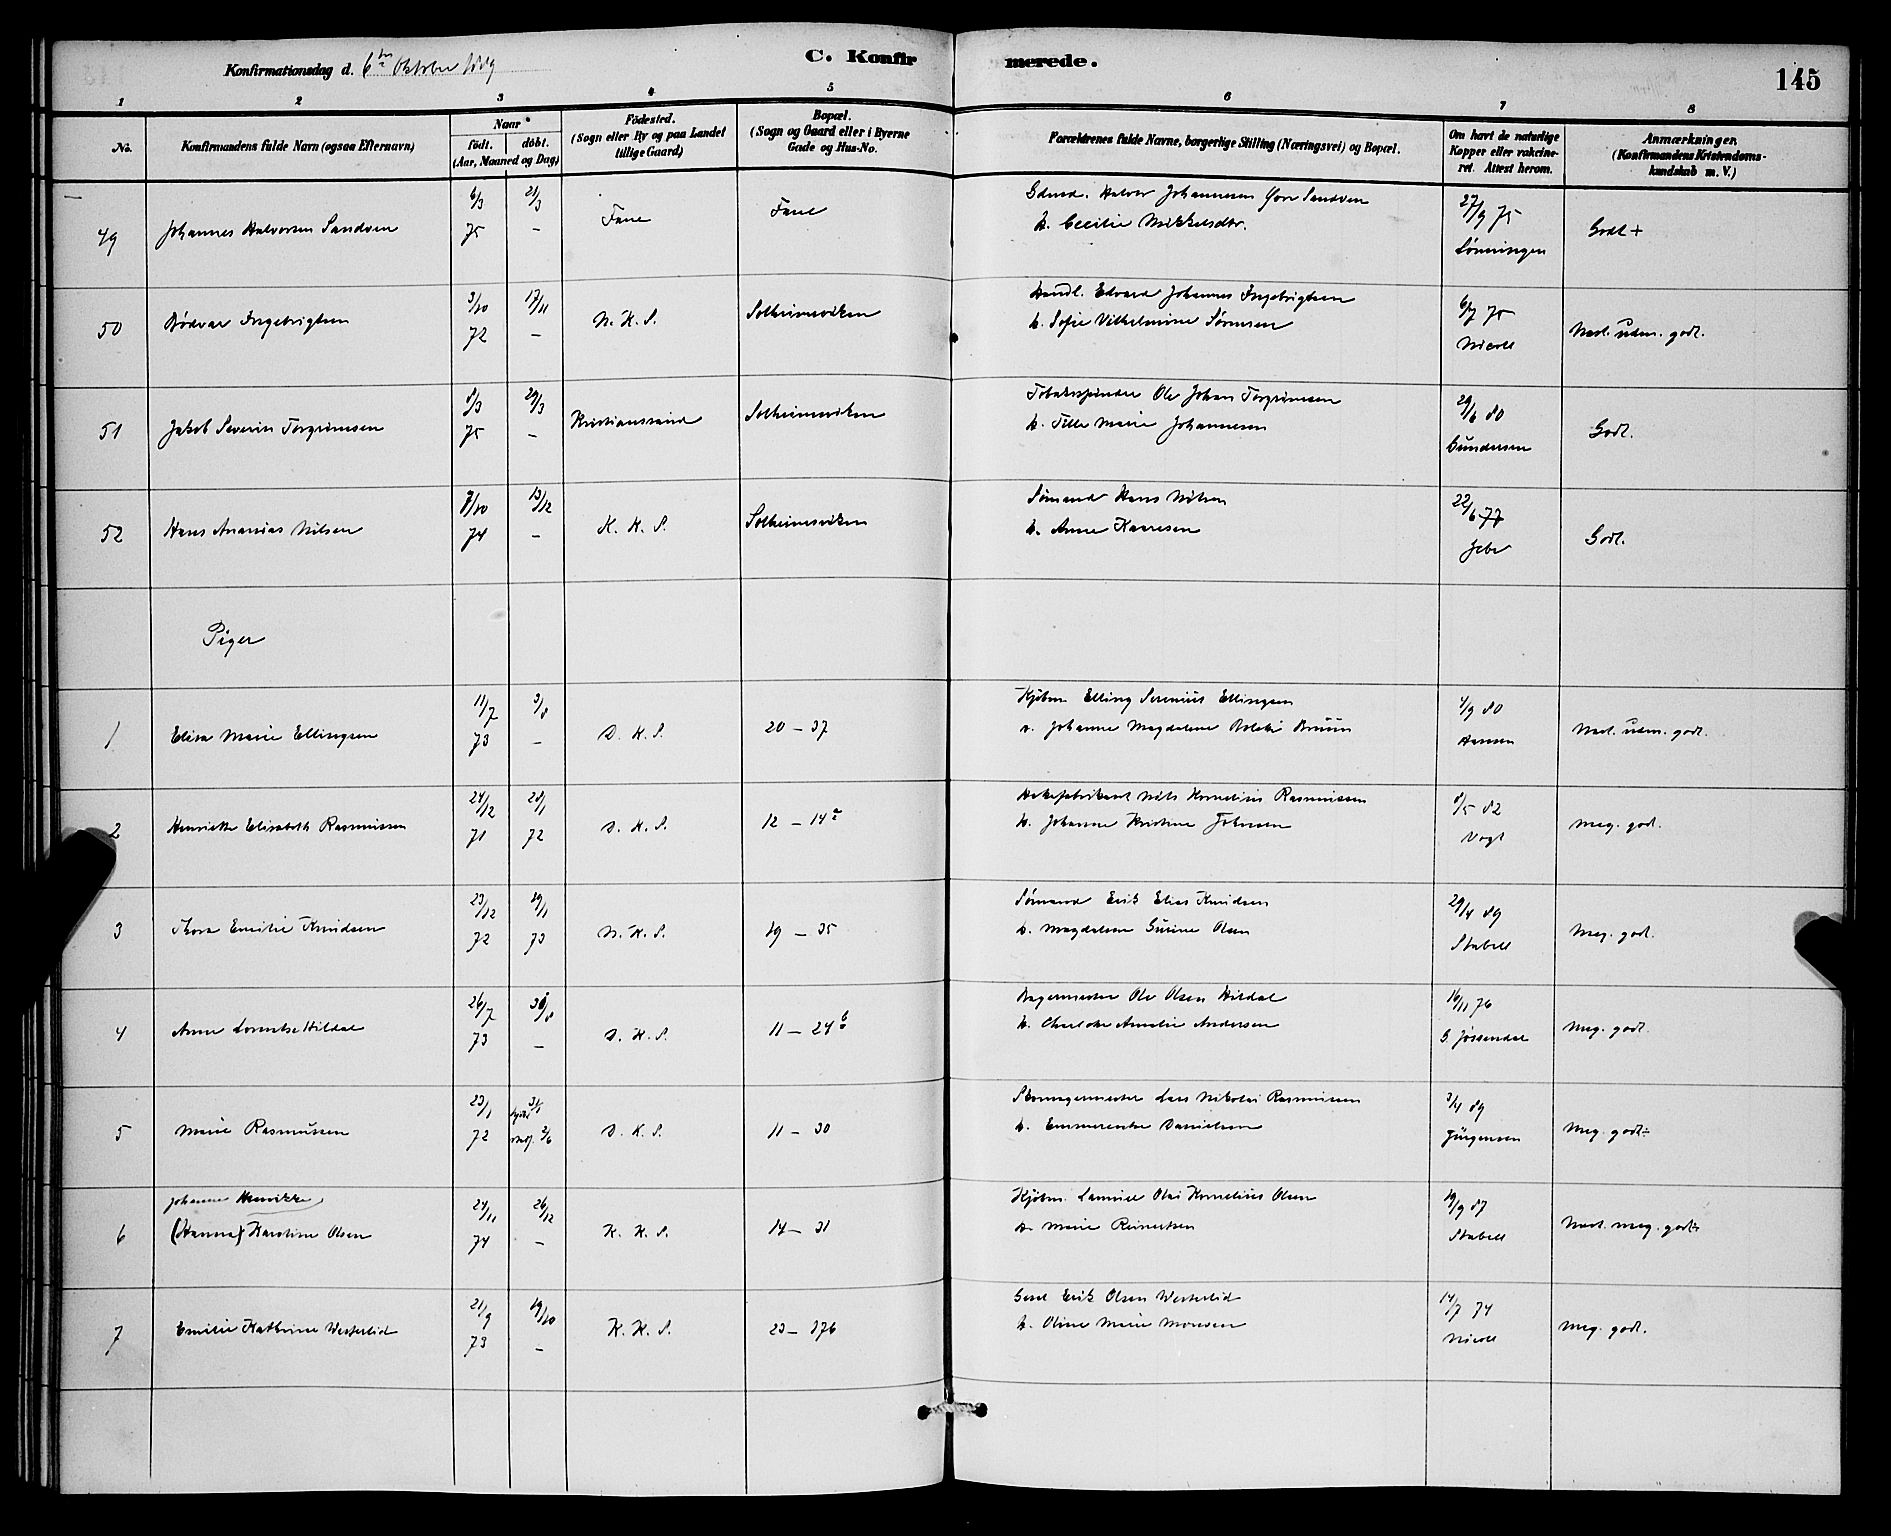 Konfirmationsdag d. 6te Oktober 1889
C. Konfir
merede.
145
1 2 3 4 5 6 7 8
No.
Konfirmandens fulde Navn (ogsaa Efternavn)
Naar
födt. döbt.
(Aar, Maaned og Dag)
Födested.
(Sogn eller By og paa Landet
tillige Gaard)
Bopæl.
(Sogn og Gaard eller i Byerne
Gade og Hus-No.
Forældrenes fulde Navne, borgerlige Stilling (Næringsvei) og Bopæl.
Om havt de naturlige
Kopper eller vakcine-
ret. Attest herom.
Anmærkninger.
(Konfirmandens Kristendoms-
kundskab m. V.)
6/3 21/3
Gdmd. Halvor Johannesen Sandven
27/9 75
49 Johannes Halvorsen Sandven 75 – Fane Fane
h. Cecilie Mikkelsdtr.
Lönningen
Godt +
3/10 17/11
Handl. Edvard Johannes Ingebrigtsen
6/7 75
50 Bödvar Ingebrigtsen 72 – N. K. S. Solheimsviken
h. Sofie Vilhelmine Sörensen
Nicoll
Med. udm. godt.
8/3 29/3
Tobakspinder Ole Johan Torgrimsen
29/6 80
51 Jakob Severin Torgrimsen 75 – Kristianssund Solheimsviken
h. Tille Marie Johannesen
Gundersen
Godt.
9/10 13/12
Sömand Hans Nilsen
22/6 77
52 Hans Ananias Nilsen 74 – K. K. S. Solheimsviken
h. Anne Kaaresen
Jebe
Godt.
Piger
11/7 3/8
Kjöbm. Elling Serenius Ellingsen
4/9 80
1 Elisa Marie Ellingsen 73 – D. K. S. 20 – 37
h. Johanne Magdalene Bolette Bruun
Hansen
Med. udm. godt.
24/12 28/1
Nils Kornelius Rasmussen
8/5 82
2 Henriette Elisabeth Rasmussen 71 72 D. K. S. 12 – 14a
h. Johanne Kristine Johnsen
Vogt
Meg. godt.
23/12 19/1
Sömand Erik Elias Knudsen
29/4 89
3 Thora Emilie Knudsen 72 73 N. K. S. 19 – 35
h. Magdalene Gurine Olsen
Stabell
Meg. godt.
26/7 30/8
Bagermester Ole Olsen Hildal
16/11 76
4 Anne Lorentse Hildal 73 – D. K. S. 11 – 24b
h. Charlotte Amalie Andersen
G. Jossendal
Meg. godt.
23/1 31/1
Skomagermester Lars Nikolai Rasmussen
3/4 89
5 Marie Rasmussen 72 2/6 D. K. S. 11 – 30
h. Emmerentse Danielsen
Jürgensen
Meg. godt ÷
Johanne Henrikke
24/11 26/12
Kjöbm. Samuel Olai Kornelius Olsen
19/9 87
6 (Hanna) Karoline Olsen 74 – K. K. S. 14 – 31
h. Marie Reinertsen
Stabell
Med. meg. godt
21/9 19/10
Erik Olsen Westerlid
14/7 74
7 Emilie Kathrine Westerlid 73 – K. K. S. 23 – 376
h. Oline Marie Monsen
Nicoll
Meg. godt.